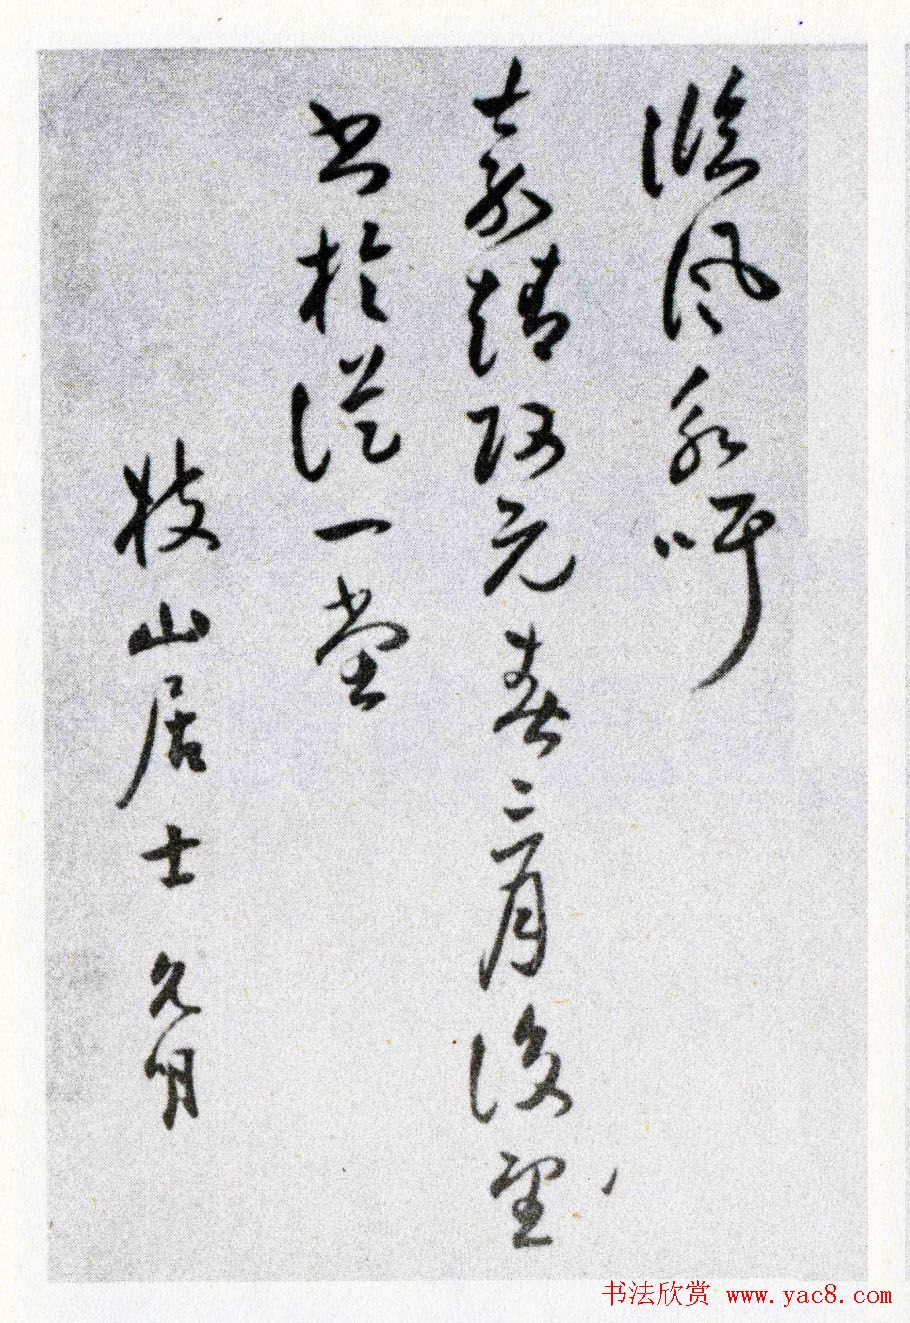 臨風永吁
嘉靖改元春三月後望
書於從一堂
枝山居士允明
书法欣赏 www.yac8.com